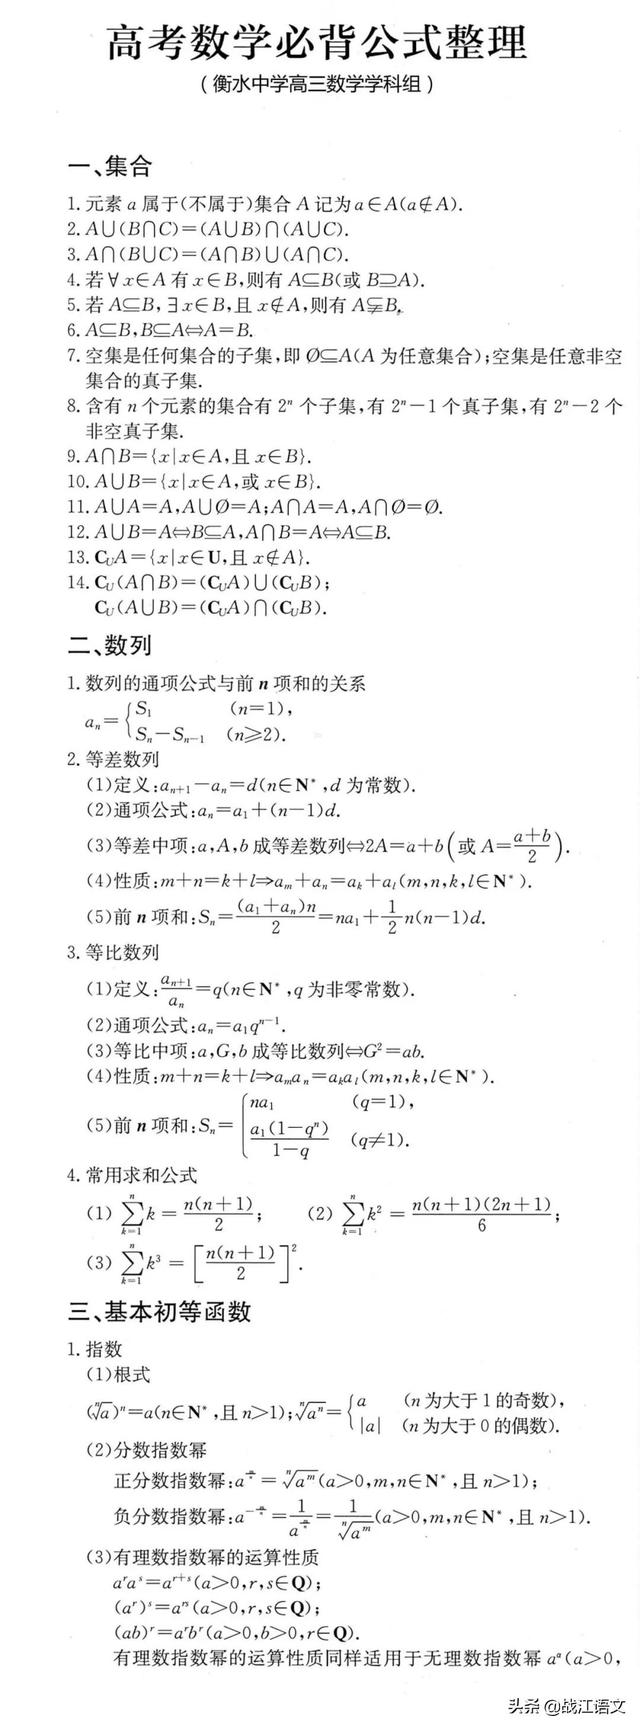 高考数学必背公式整理
（衡水中学高三数学学科组）
一、集合
1. 元素 a 属于(不属于)集合 A 记为 a∈A(a∉A).
2. A∪(B∩C)=(A∪B)∩(A∪C).
3. A∩(B∪C)=(A∩B)∪(A∩C).
4. 若∀x∈A 有 x∈B,则有 A⊆B(或 B⊇A).
5. 若 A⊆B,∃x∈B,且 x∉A,则有 A⫋B.
6. A⊆B,B⊆A⇔A=B.
7. 空集是任何集合的子集,即 ∅⊆A(A 为任意集合);空集是任意非空
集合的真子集.
8. 含有 n 个元素的集合有 2ⁿ 个子集,有 2ⁿ-1 个真子集,有 2ⁿ-2 个
非空真子集.
9. A∩B={x|x∈A,且 x∈B}.
10. A∪B={x|x∈A,或 x∈B}.
11. A∪A=A,A∪∅=A;A∩A=A,A∩∅=∅.
12. A∪B=A⇔B⊆A,A∩B=A⇔A⊆B.
13. ∁_U A={x|x∈U,且 x∉A}.
14. ∁_U(A∩B)=(∁_U A)∪(∁_U B);
∁_U(A∪B)=(∁_U A)∩(∁_U B).
二、数列
1. 数列的通项公式与前 n 项和的关系
a_n={S_1 (n=1),
S_n-S_{n-1} (n≥2).
2. 等差数列
(1)定义:a_{n+1}-a_n=d(n∈N*,d 为常数).
(2)通项公式:a_n=a_1+(n-1)d.
(3)等差中项:a,A,b 成等差数列⇔2A=a+b(或 A=(a+b)/2).
(4)性质:m+n=k+l⇒a_m+a_n=a_k+a_l(m,n,k,l∈N*).
(5)前 n 项和:S_n=(a_1+a_n)n/2=na_1+1/2n(n-1)d.
3. 等比数列
(1)定义:a_{n+1}/a_n=q(n∈N*,q 为非零常数).
(2)通项公式:a_n=a_1q^{n-1}.
(3)等比中项:a,G,b 成等比数列⇔G²=ab.
(4)性质:m+n=k+l⇒a_ma_n=a_ka_l(m,n,k,l∈N*).
(5)前 n 项和:S_n={na_1 (q=1),
a_1(1-qⁿ)/(1-q) (q≠1).
4. 常用求和公式
(1) ∑_{k=1}^{n}k=n(n+1)/2; (2) ∑_{k=1}^{n}k²=n(n+1)(2n+1)/6;
(3) ∑_{k=1}^{n}k³=[n(n+1)/2]².
三、基本初等函数
1. 指数
(1)根式
(ⁿ√a)ⁿ=a(n∈N*,且 n>1);ⁿ√aⁿ={a (n 为大于 1 的奇数),
|a| (n 为大于 0 的偶数).
(2)分数指数幂
正分数指数幂:a^{m/n}=ⁿ√a^m(a>0,m,n∈N*,且 n>1);
负分数指数幂:a^{-m/n}=1/a^{m/n}=1/ⁿ√a^m(a>0,m,n∈N*,且 n>1).
(3)有理数指数幂的运算性质
a^r a^s=a^{r+s}(a>0,r,s∈Q);
(a^r)^s=a^{rs}(a>0,r,s∈Q);
(ab)^r=a^r b^r(a>0,b>0,r∈Q).
有理数指数幂的运算性质同样适用于无理数指数幂 a^α(a>0,
头条 @战江语文